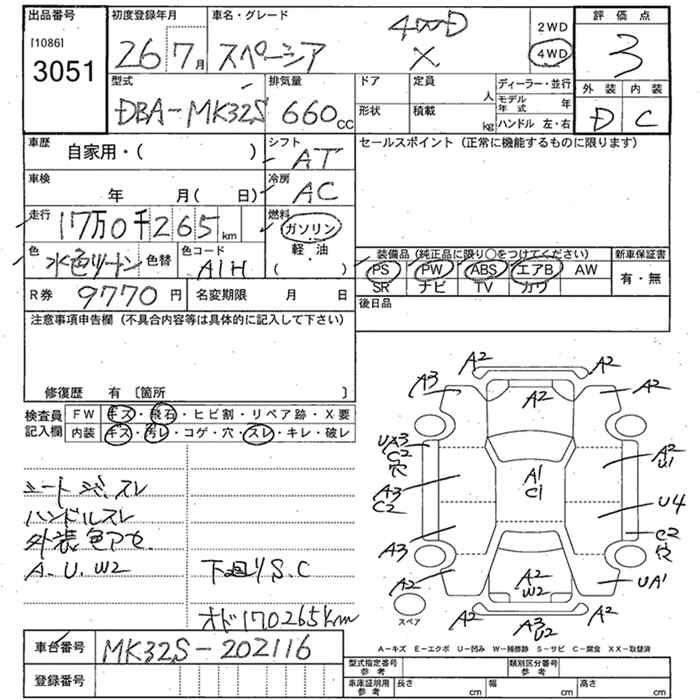 出品番号
[1086]
3051
初度登録年月
26 7月
車名・グレード
スペーシア
4WD
X
2WD
4WD
評価点
3
外装 内装
D C
型式
DBA-MK32S
排気量
660CC
ドア
定員
人
形状
積載
kg
ディーラー・並行
モデル年式
年
ハンドル 左・右
車歴
自家用・( )
シフト
AT
セールスポイント (正常に機能するものに限ります)
車検
年 月( 日)
冷房
AC
走行
17万0千265km
燃料
ガソリン
軽・油
( )
色
水色ツートン
色替
色コード
A1H
装備品 (純正品に限り○をつけてください)
新車保証書
PS PW ABS エアB AW
SR ナビ TV カワ
有・無
R券 9770円
名変期限 月 日
後日品
注意事項申告欄 (不具合内容等は具体的に記入して下さい)
修復歴 有 [箇所 ]
検査員記入欄
FW キズ・飛石・ヒビ割・リペア跡・X要
内装 キズ・汚レ・コゲ・穴・スレ・キレ・破レ
シート シミ、スレ
ハンドルスレ
外装色アセ
A.U.W2
下回りS.C
オド170265km
A2
A2
A3
A2
A2
UX3
C2
穴
A2
U1
A1
C1
A3
C2
U4
A3
C2
穴
A2
A2
W2
UA1
A2
A3
U2
A2
スペア
A-キズ E-エクボ U-凹み W-補修跡 S-サビ C-腐食 XX-取替済
車台番号 MK32S-202116
登録番号
型式指定番号
参考
類別区分番号
参考
車庫証明用
参考
長さ cm
幅 cm
高さ cm